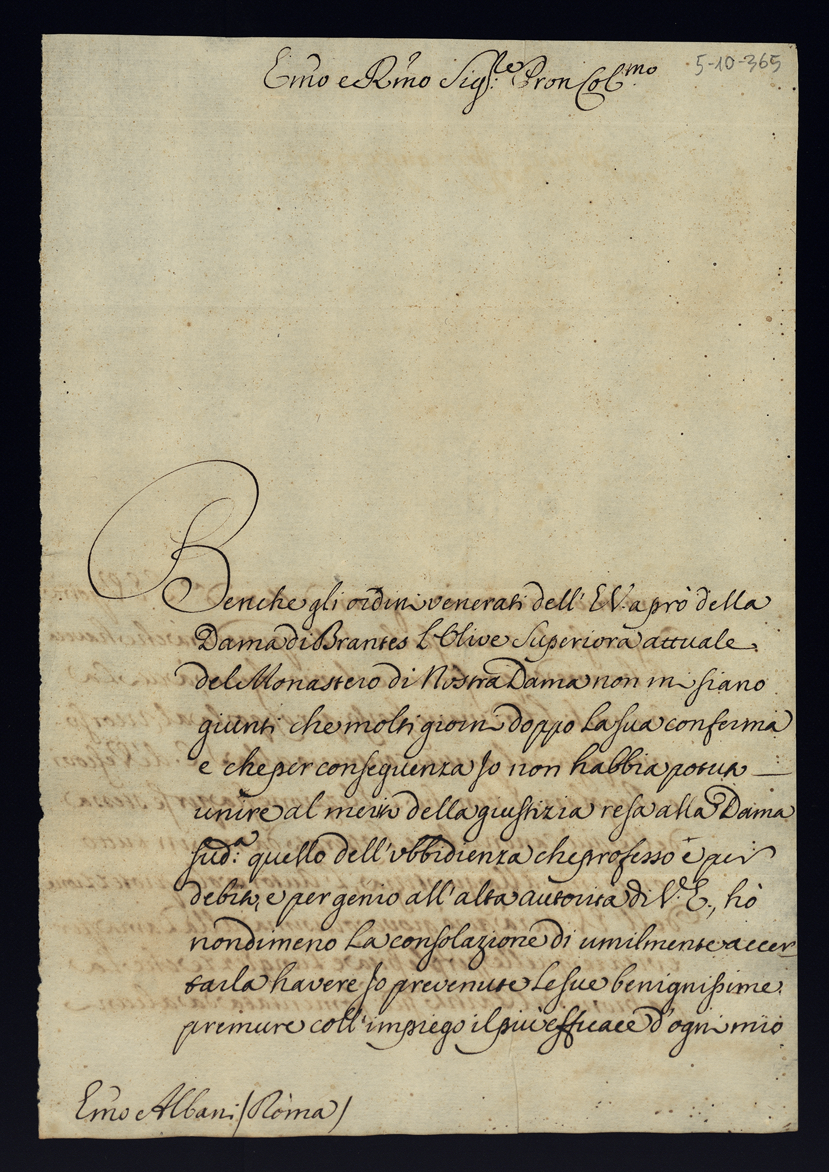 Emo e Rmo Sig:re Pron Col:mo
5-10-365
Benche gli ordini venerati dell' E.V. a prò della
Dama di Brantes L'Olive Superiora attuale
del Monastero di Nostra Dama non mi siano
giunti che molti giorni doppo la sua conferma
e che per conseguenza Jo non habbia potuto
unire al merito della giustizia resa alla Dama
sud:a quello dell'ubbidienza che professo e per
debito, e per genio all'alta autorità di V.E., hò
nondimeno la consolazione di umilmente accer
tarla havere Jo prevenute le sue benignissime
premure coll'impiego il più efficace d'ogni mio
Emo Albani (Roma)